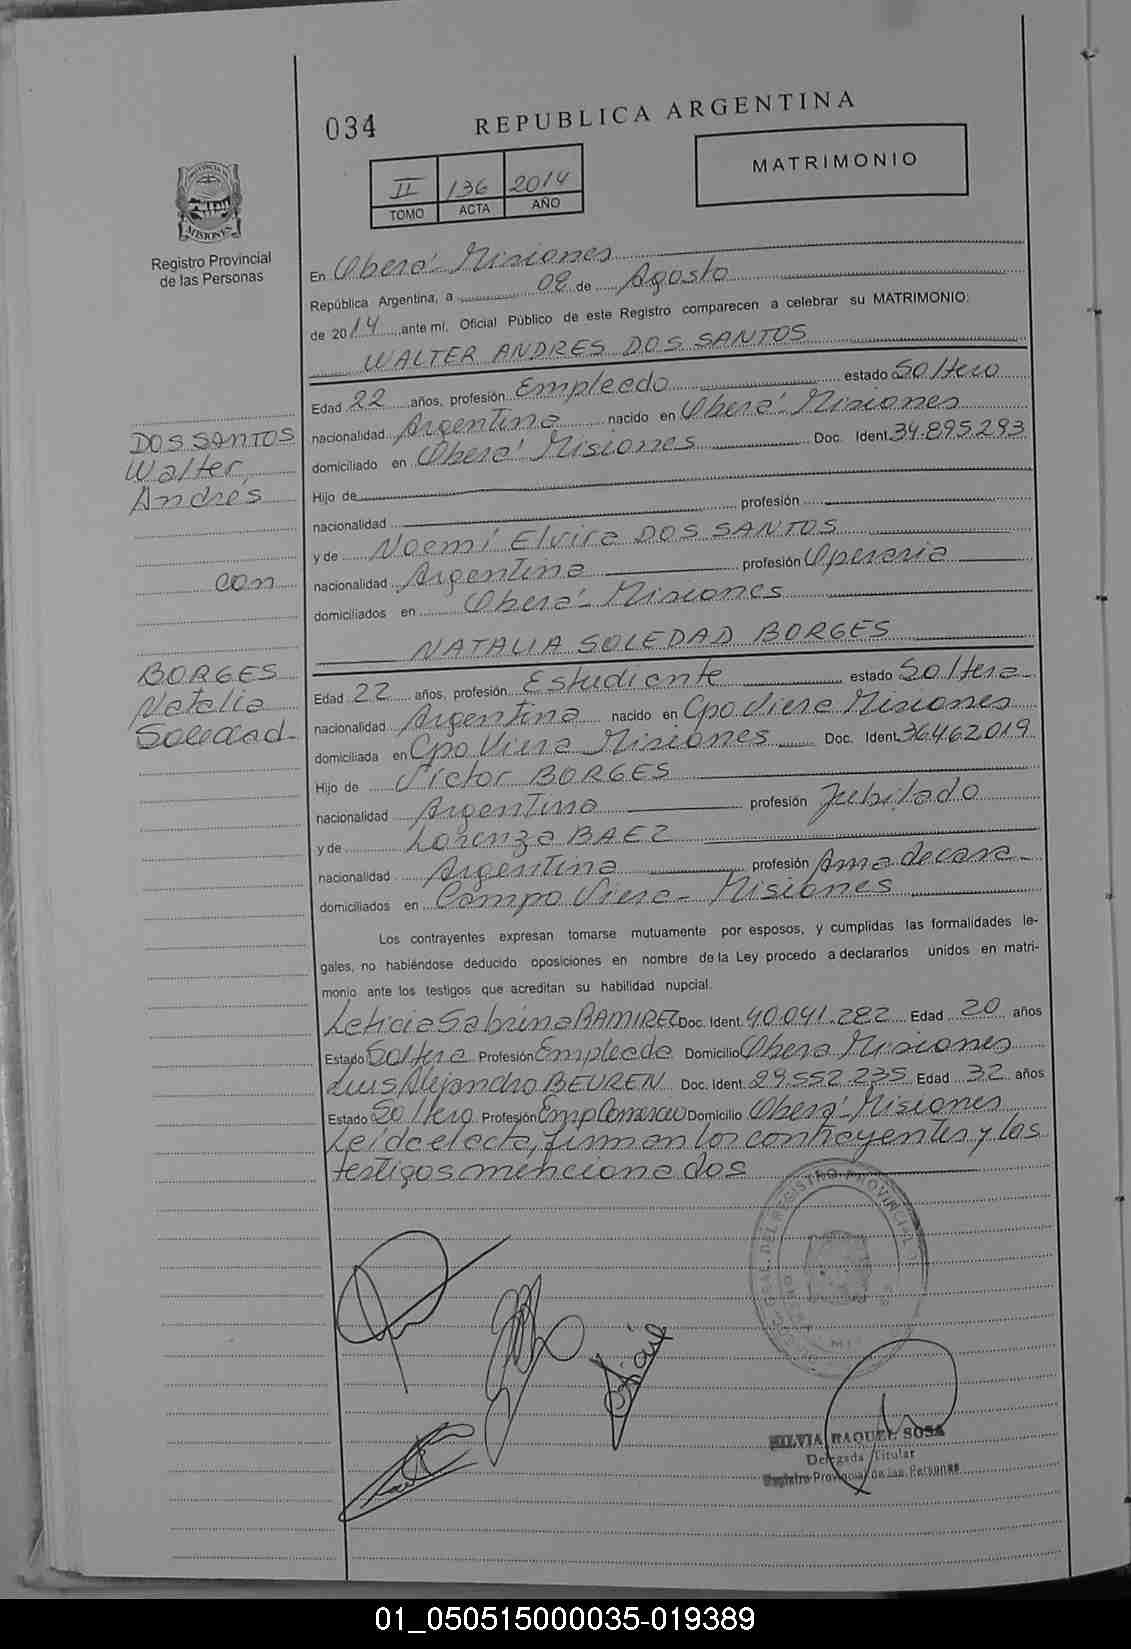 034
REPUBLICA ARGENTINA
MATRIMONIO
II 136 2014
TOMO ACTA AÑO
MISIONES
Registro Provincial
de las Personas
En Oberá - Misiones
República Argentina, a 08 de Agosto
de 2014 ante mí, Oficial Público de este Registro comparecen a celebrar su MATRIMONIO:
WALTER ANDRES DOS SANTOS
Edad 22 años, profesión Empleado estado Soltero
nacionalidad Argentina nacido en Oberá - Misiones
domiciliado en Oberá - Misiones Doc. Ident. 34.895.293
Hijo de
nacionalidad profesión
y de Noemí Elvira DOS SANTOS
nacionalidad Argentina profesión Operaria
domiciliados en Oberá - Misiones
DOS SANTOS
Walter
Andrés
con
BORGES
Natalia
Soledad
NATALIA SOLEDAD BORGES
Edad 22 años, profesión Estudiante estado Soltera
nacionalidad Argentina nacido en Cpo Viera Misiones
domiciliada en Cpo Viera Misiones Doc. Ident. 36462019
Hijo de Víctor BORGES
nacionalidad Argentino profesión Jubilado
y de Lorenza BAEZ
nacionalidad Argentina profesión Ama de casa
domiciliados en Campo Viera - Misiones
Los contrayentes expresan tomarse mutuamente por esposos, y cumplidas las formalidades le-
gales, no habiéndose deducido oposiciones en nombre de la Ley procedo a declararlos unidos en matri-
monio ante los testigos que acreditan su habilidad nupcial.
Leticia Sabrina RAMIREZ Doc. Ident. 40.041.282 Edad 20 años
Estado Soltera Profesión Empleada Domicilio Oberá Misiones
Luis Alejandro BEUREN Doc. Ident. 29.552.235 Edad 32 años
Estado Soltero Profesión Emp Comercio Domicilio Oberá - Misiones
Leída el acta, firman los contrayentes y los
testigos mencionados
SILVIA RAQUEL SOSA
Delegada Titular
Registro Provincial de las Personas
01_050515000035-019389